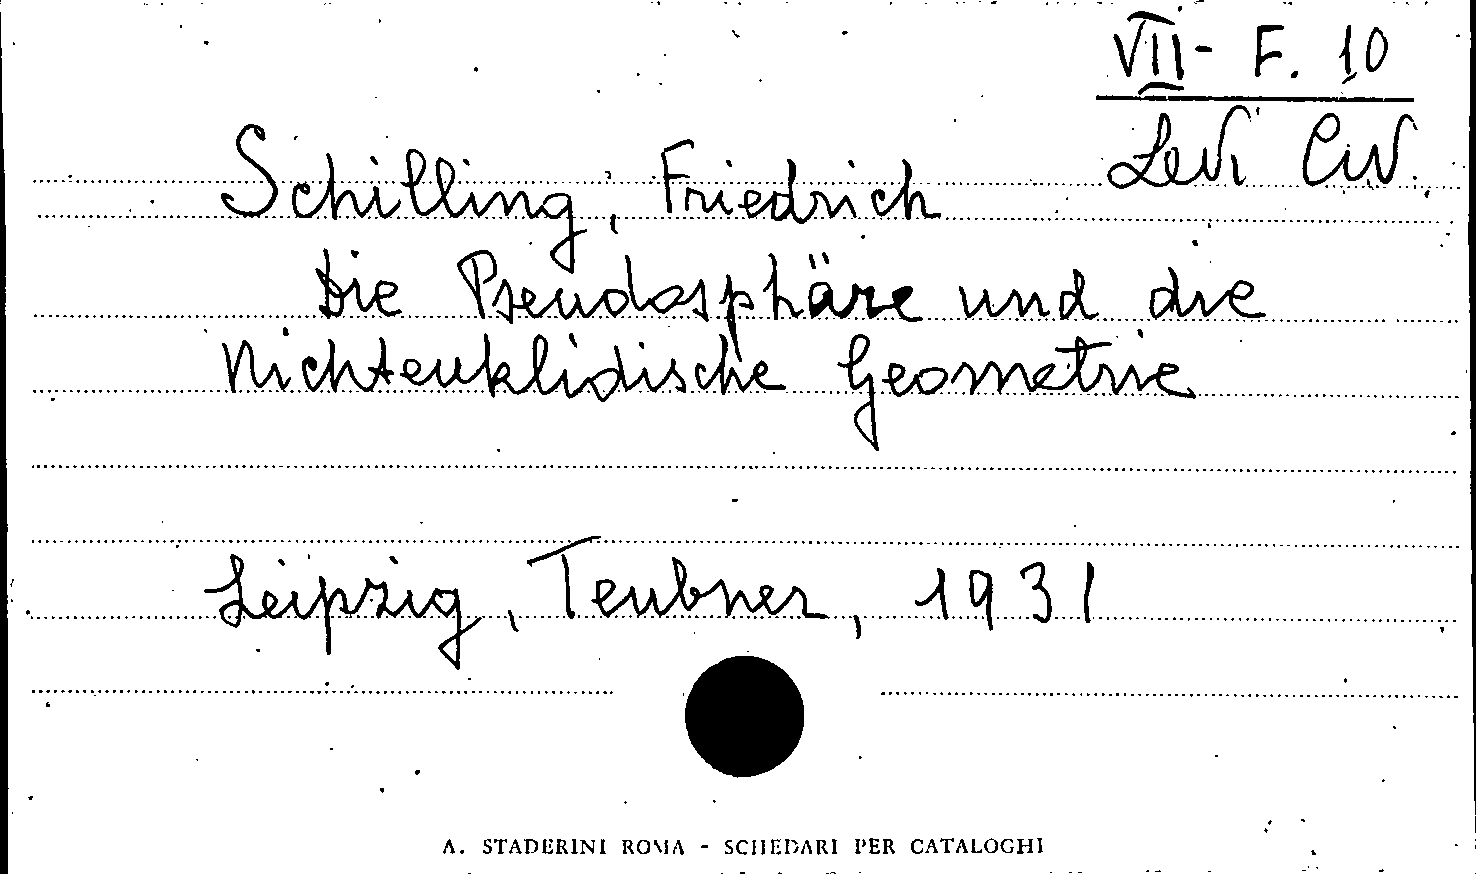 VII- F. 10
Levi Civ.
Schilling, Friedrich
Die Pseudosphäre und die
Nichteuklidische Geometrie
Leipzig, Teubner, 1931
A. STADERINI ROMA - SCHEDARI PER CATALOGHI